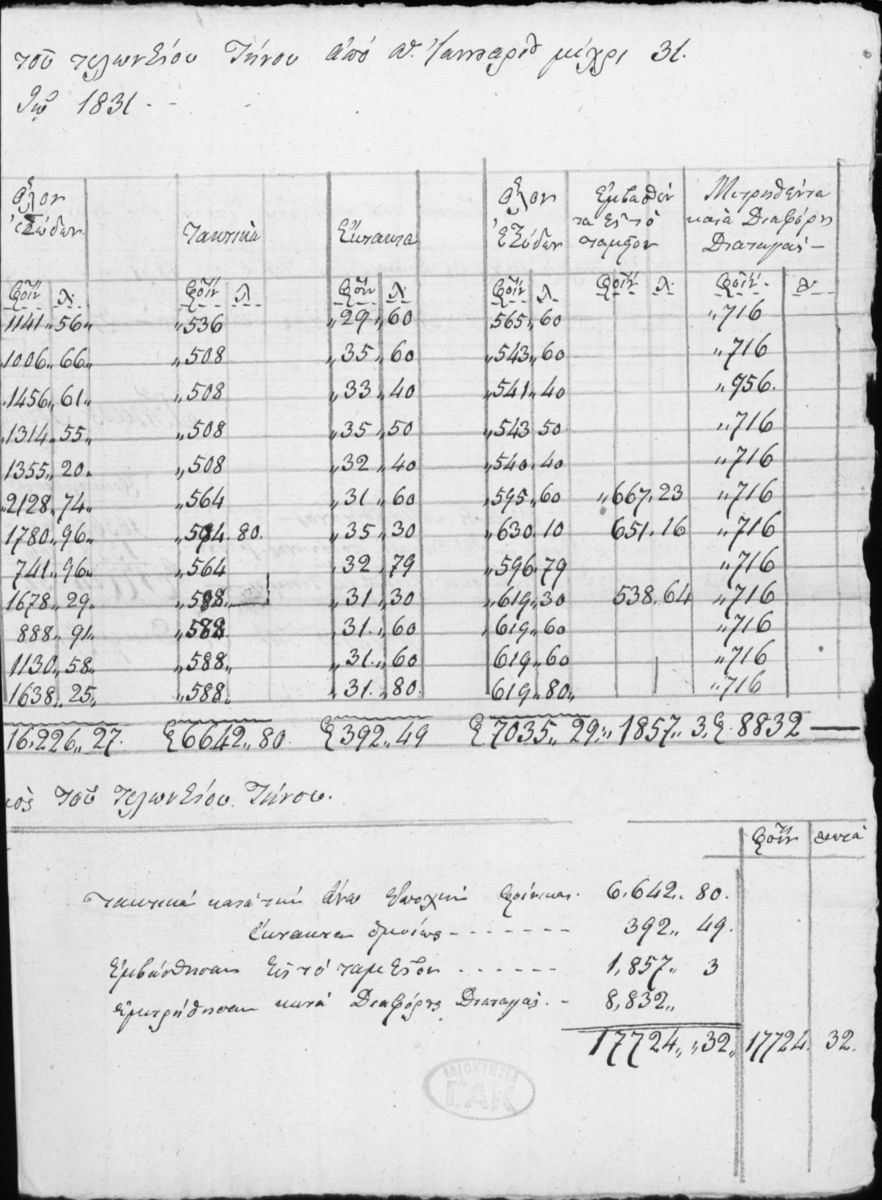 τοῦ τελωνείου Τήνου ἀπό α. Ἰανουαρίου μέχρι 31.
1831.
ὅλον ἐξόδων τακτικά ἔκτακτα ὅλον ἐξόδων Ἐμβασθέντα εἰς τό ταμεῖον Μετρηθέντα κατά Διαφόρους Διαταγάς
Φοίν λ. Φοίν λ. Φοίν λ. Φοίν λ. Φοίν λ. Φοίν. λ.
1141,, 56,, ,,536 ,,29,,60 565,,60 ,,716
1006,, 66,, ,,508 ,,35,,60 ,,543,,60 ,,716
1456,, 61,, ,,508 ,,33,,40 ,,541,,40 ,,956.
1314,, 55,, ,,508 ,,35,,50 ,,543 50 ,,716
1355,, 20,, ,,508 ,,32,,40 ,,540.40 ,,716
,,2128,,74,, ,,564 ,,31,,60 ,,595,,60 ,,667.23 ,,716
1780,,96,, ,,594.80. ,,35,,30 ,,630,10 651.16 ,,716
741,,96,, ,,564 ,,32,,79 ,,596,79 ,,716
1678,,29. ,,588. ,,31,,30 ,,619,,30 538.64 ,,716
888,,91,, ,,588 ,,31.,,60 ,,619,,60 ,,716
1130,,58,, ,,588,, ,,31.,,60 619,,60 ,,716
1638,,25,, ,,588,, ,,31.,80. 619,,80,, ,,716
16.226,,27. 6642,,80. 392,,49 7035,,29,, 1857,,3, 8832
τοῦ τελωνείου Τήνου.
Φοίν λεπτά
τακτικά κατά τήν ἄνω ἐποχήν φοίνικας. 6.642.. 80.
ἔκτακτα ὁμοίως - - - - - - - 392,, 49.
Ἐμβάσθησαν εἰς τό ταμεῖον - - - - - - 1,857,, 3
ἐμετρήθησαν κατά Διαφόρους Διαταγάς. - 8,832,,
17724,,,,32,, 17724. 32.
ΙΔΙΟΚΤΗΣΙΑ
ΓΑΚ